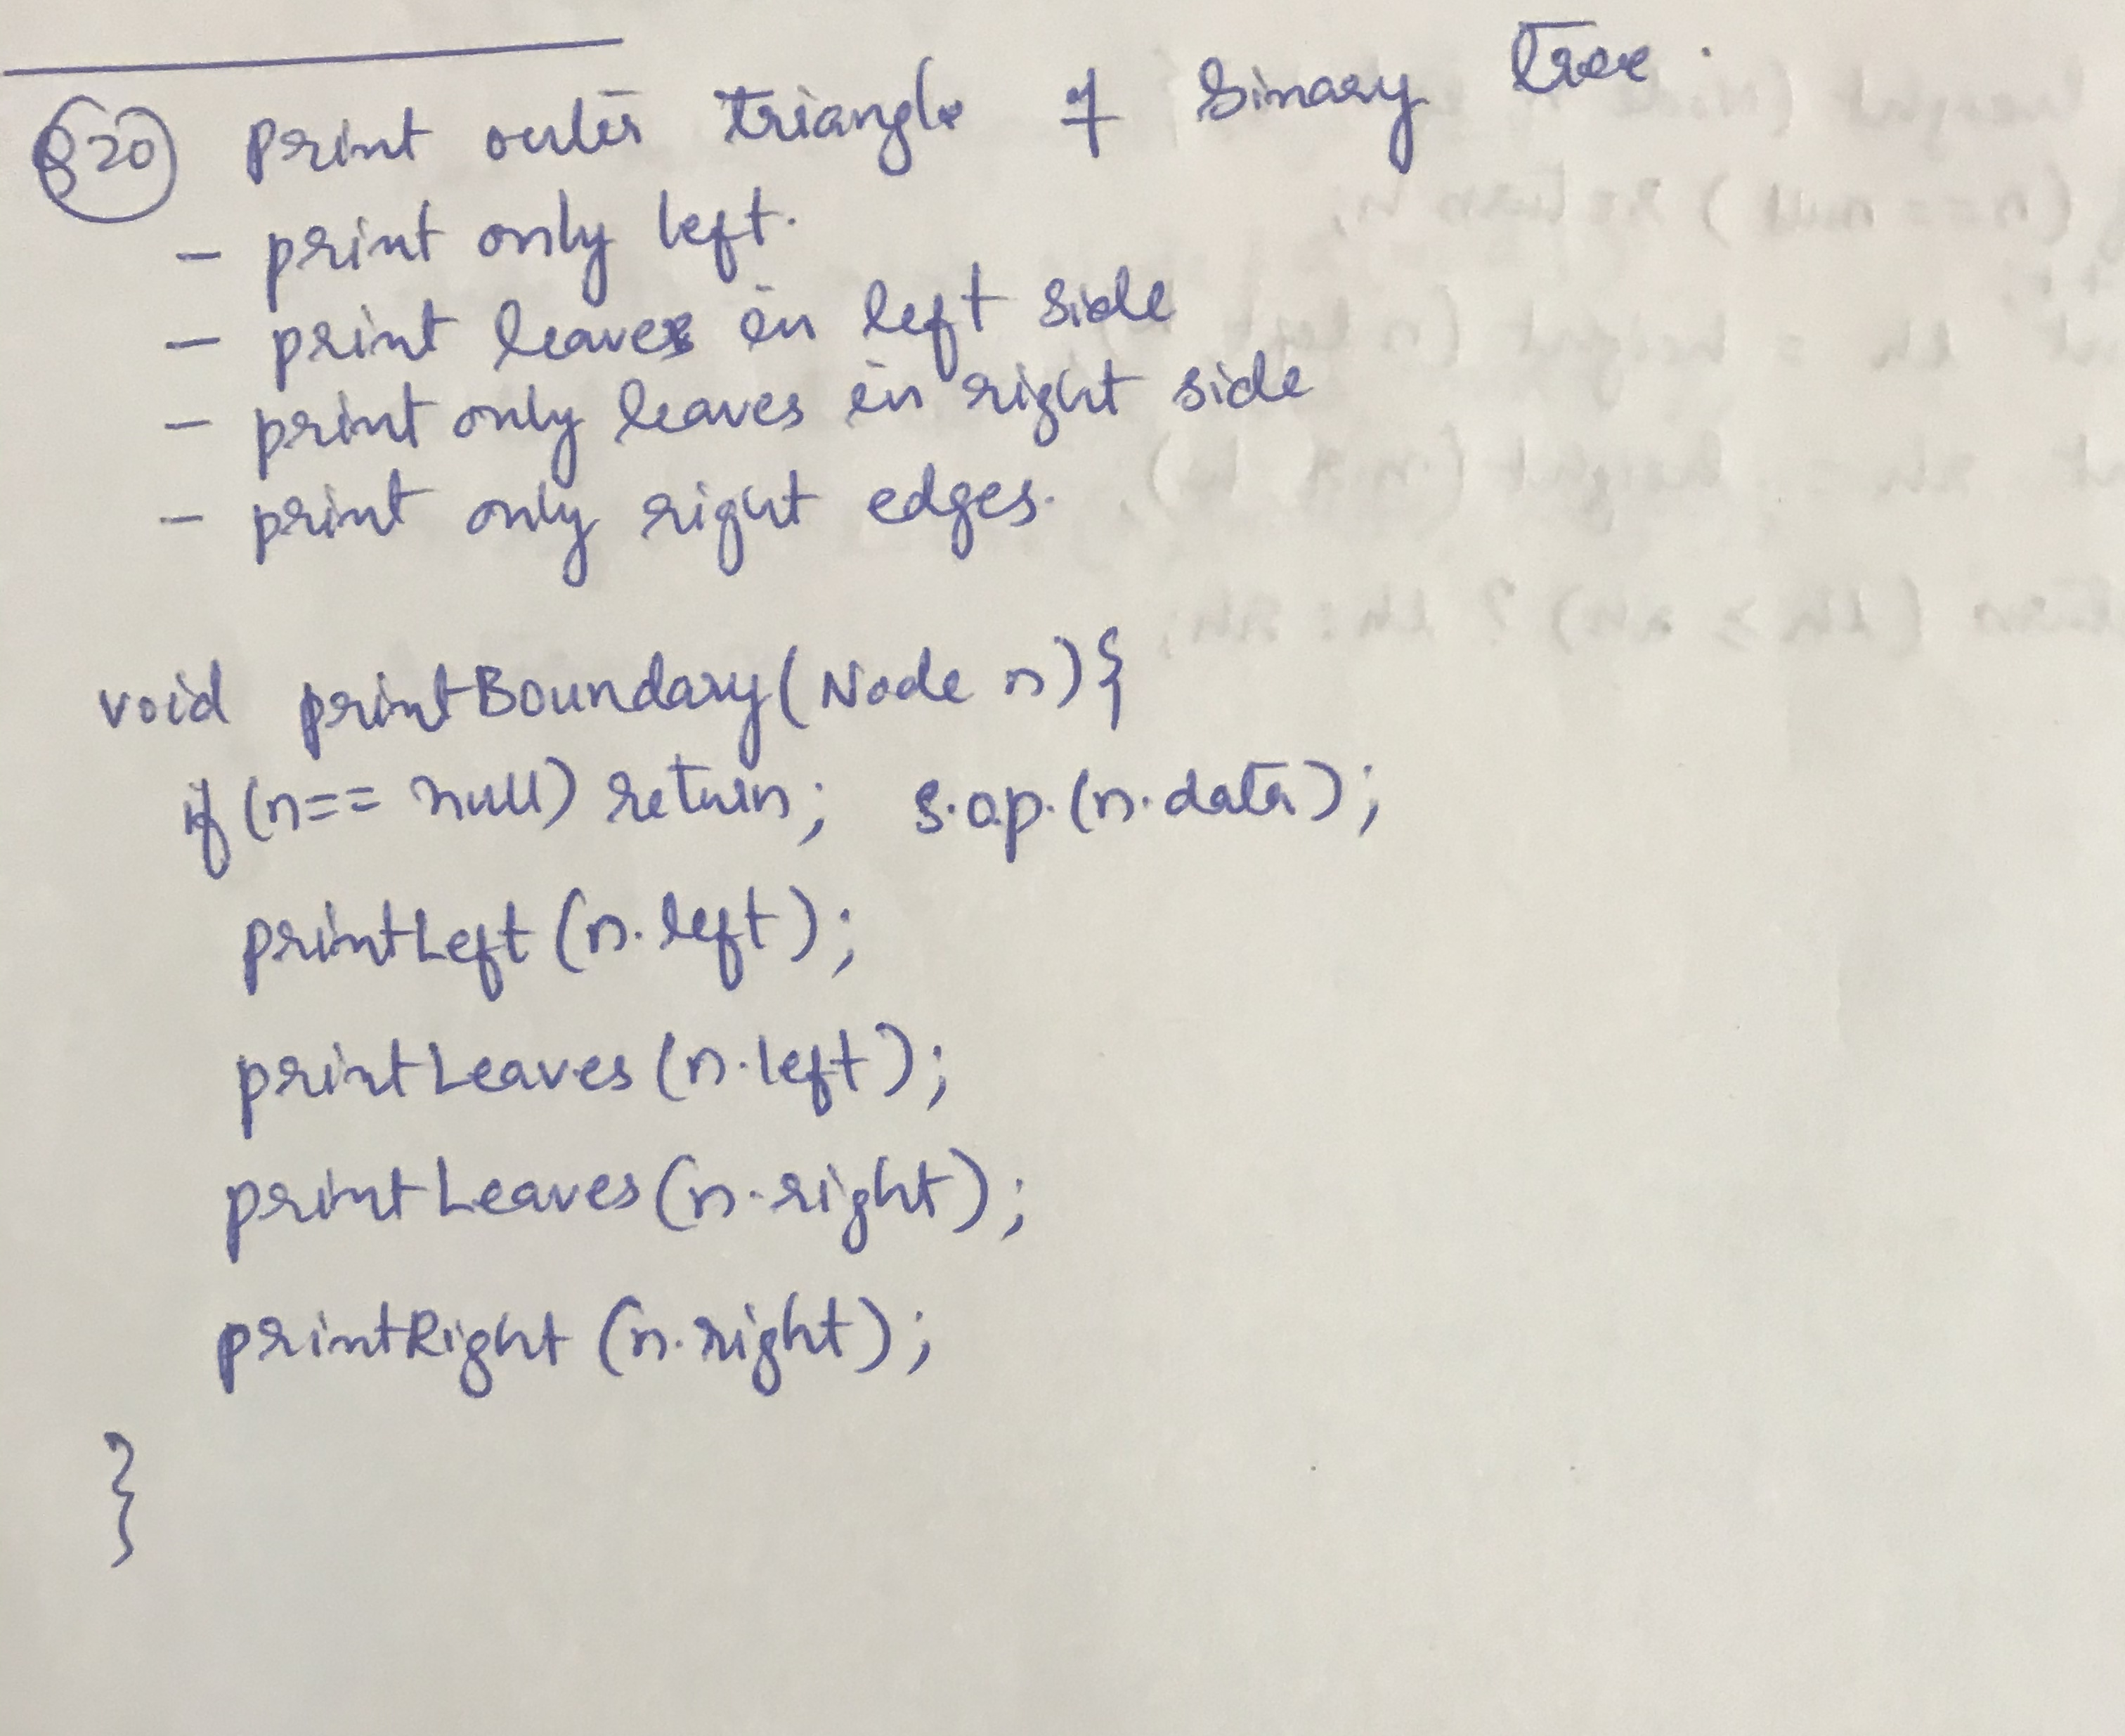 Q20 Print outer triangle of binary tree.
- print only left.
- print leaves in left side
- print only leaves in right side
- print only right edges.
void printBoundary(Node n){
if (n== null) return; s.o.p.(n.data);
printLeft(n.left);
printLeaves(n.left);
printLeaves(n.right);
printRight(n.right);
}